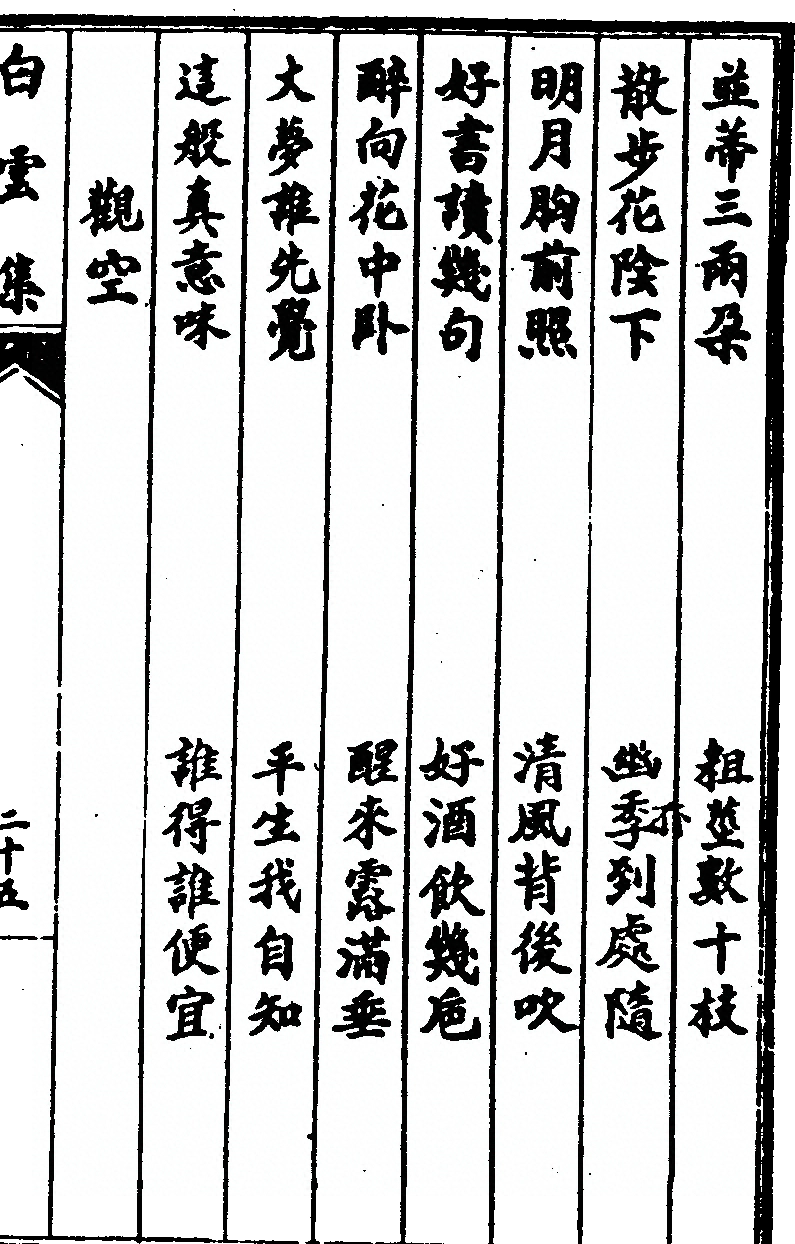 並蒂三兩朶　粗莖數十枝
散步花陰下　幽季到處隨
明月胸前照　清風背後吹
好書讀幾句　好酒飲幾巵
醉向花中卧　醒來露滿垂
大夢誰先覺　平生我自知
這般真意味　誰得誰便宜
觀空
白雲集　二十五